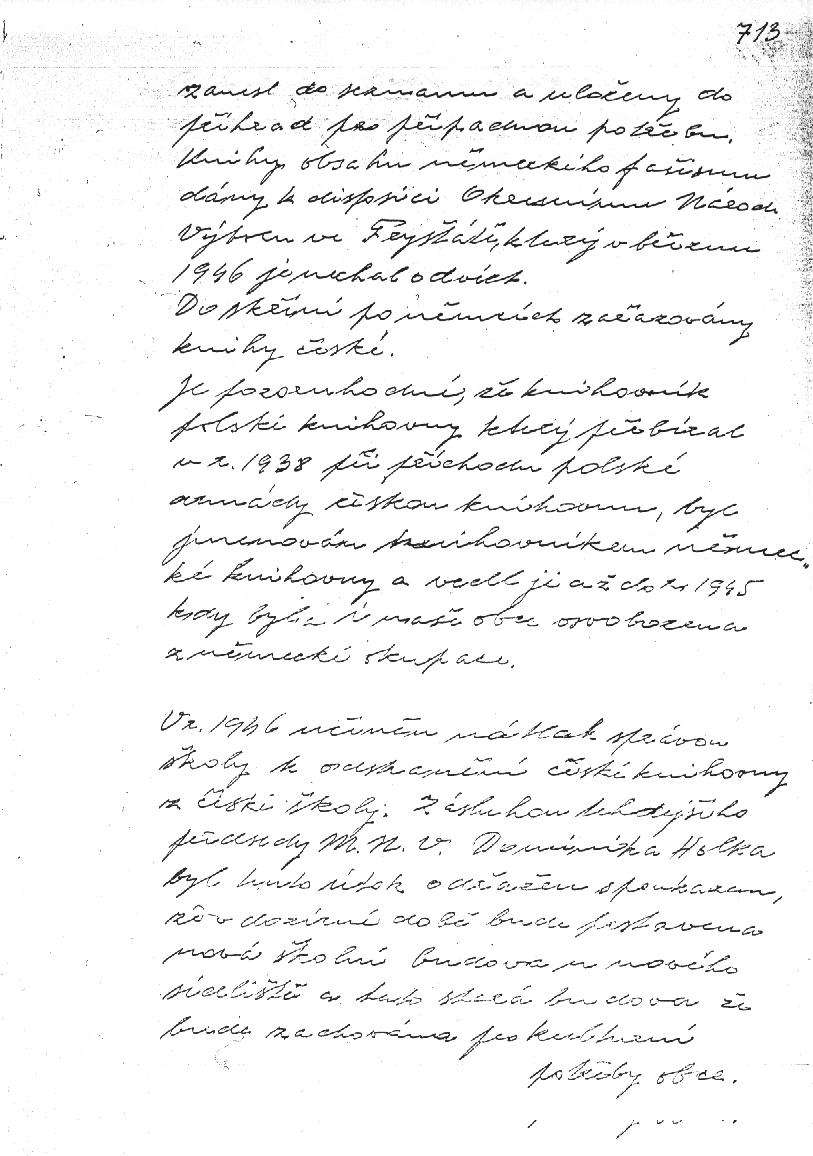 713
zanesl do seznamu a uloženy do
přihrad pro případnou potřebu.
Knihy obsahu německého fašismu
dány k disposici Okresnímu Národ.
Výboru ve Fryštátě, který v březnu
1946 je nechal odvézt.
Do skříní po němcích zařazovány
knihy české.
Je pozoruhodné, že knihovník
polské knihovny který přebíral
v r. 1938 při příchodu polské
armády českou knihovnu, byl
jmenován knihovníkem němec-
ké knihovny a vedl ji až do r. 1945
kdy byla i naše obec osvobozena
z německé okupace.
V r. 1946 učiněn nátlak správou
školy k odstranění české knihovny
z české školy. Zásluhou tehdejšího
předsedy M.N.V. Dominika Holka
byl tento útok odražen s poukazem,
že v dozírné době bude postavena
nová školní budova u nového
sídliště a tato stará budova že
bude zachována pro kulturní
potřeby obce.